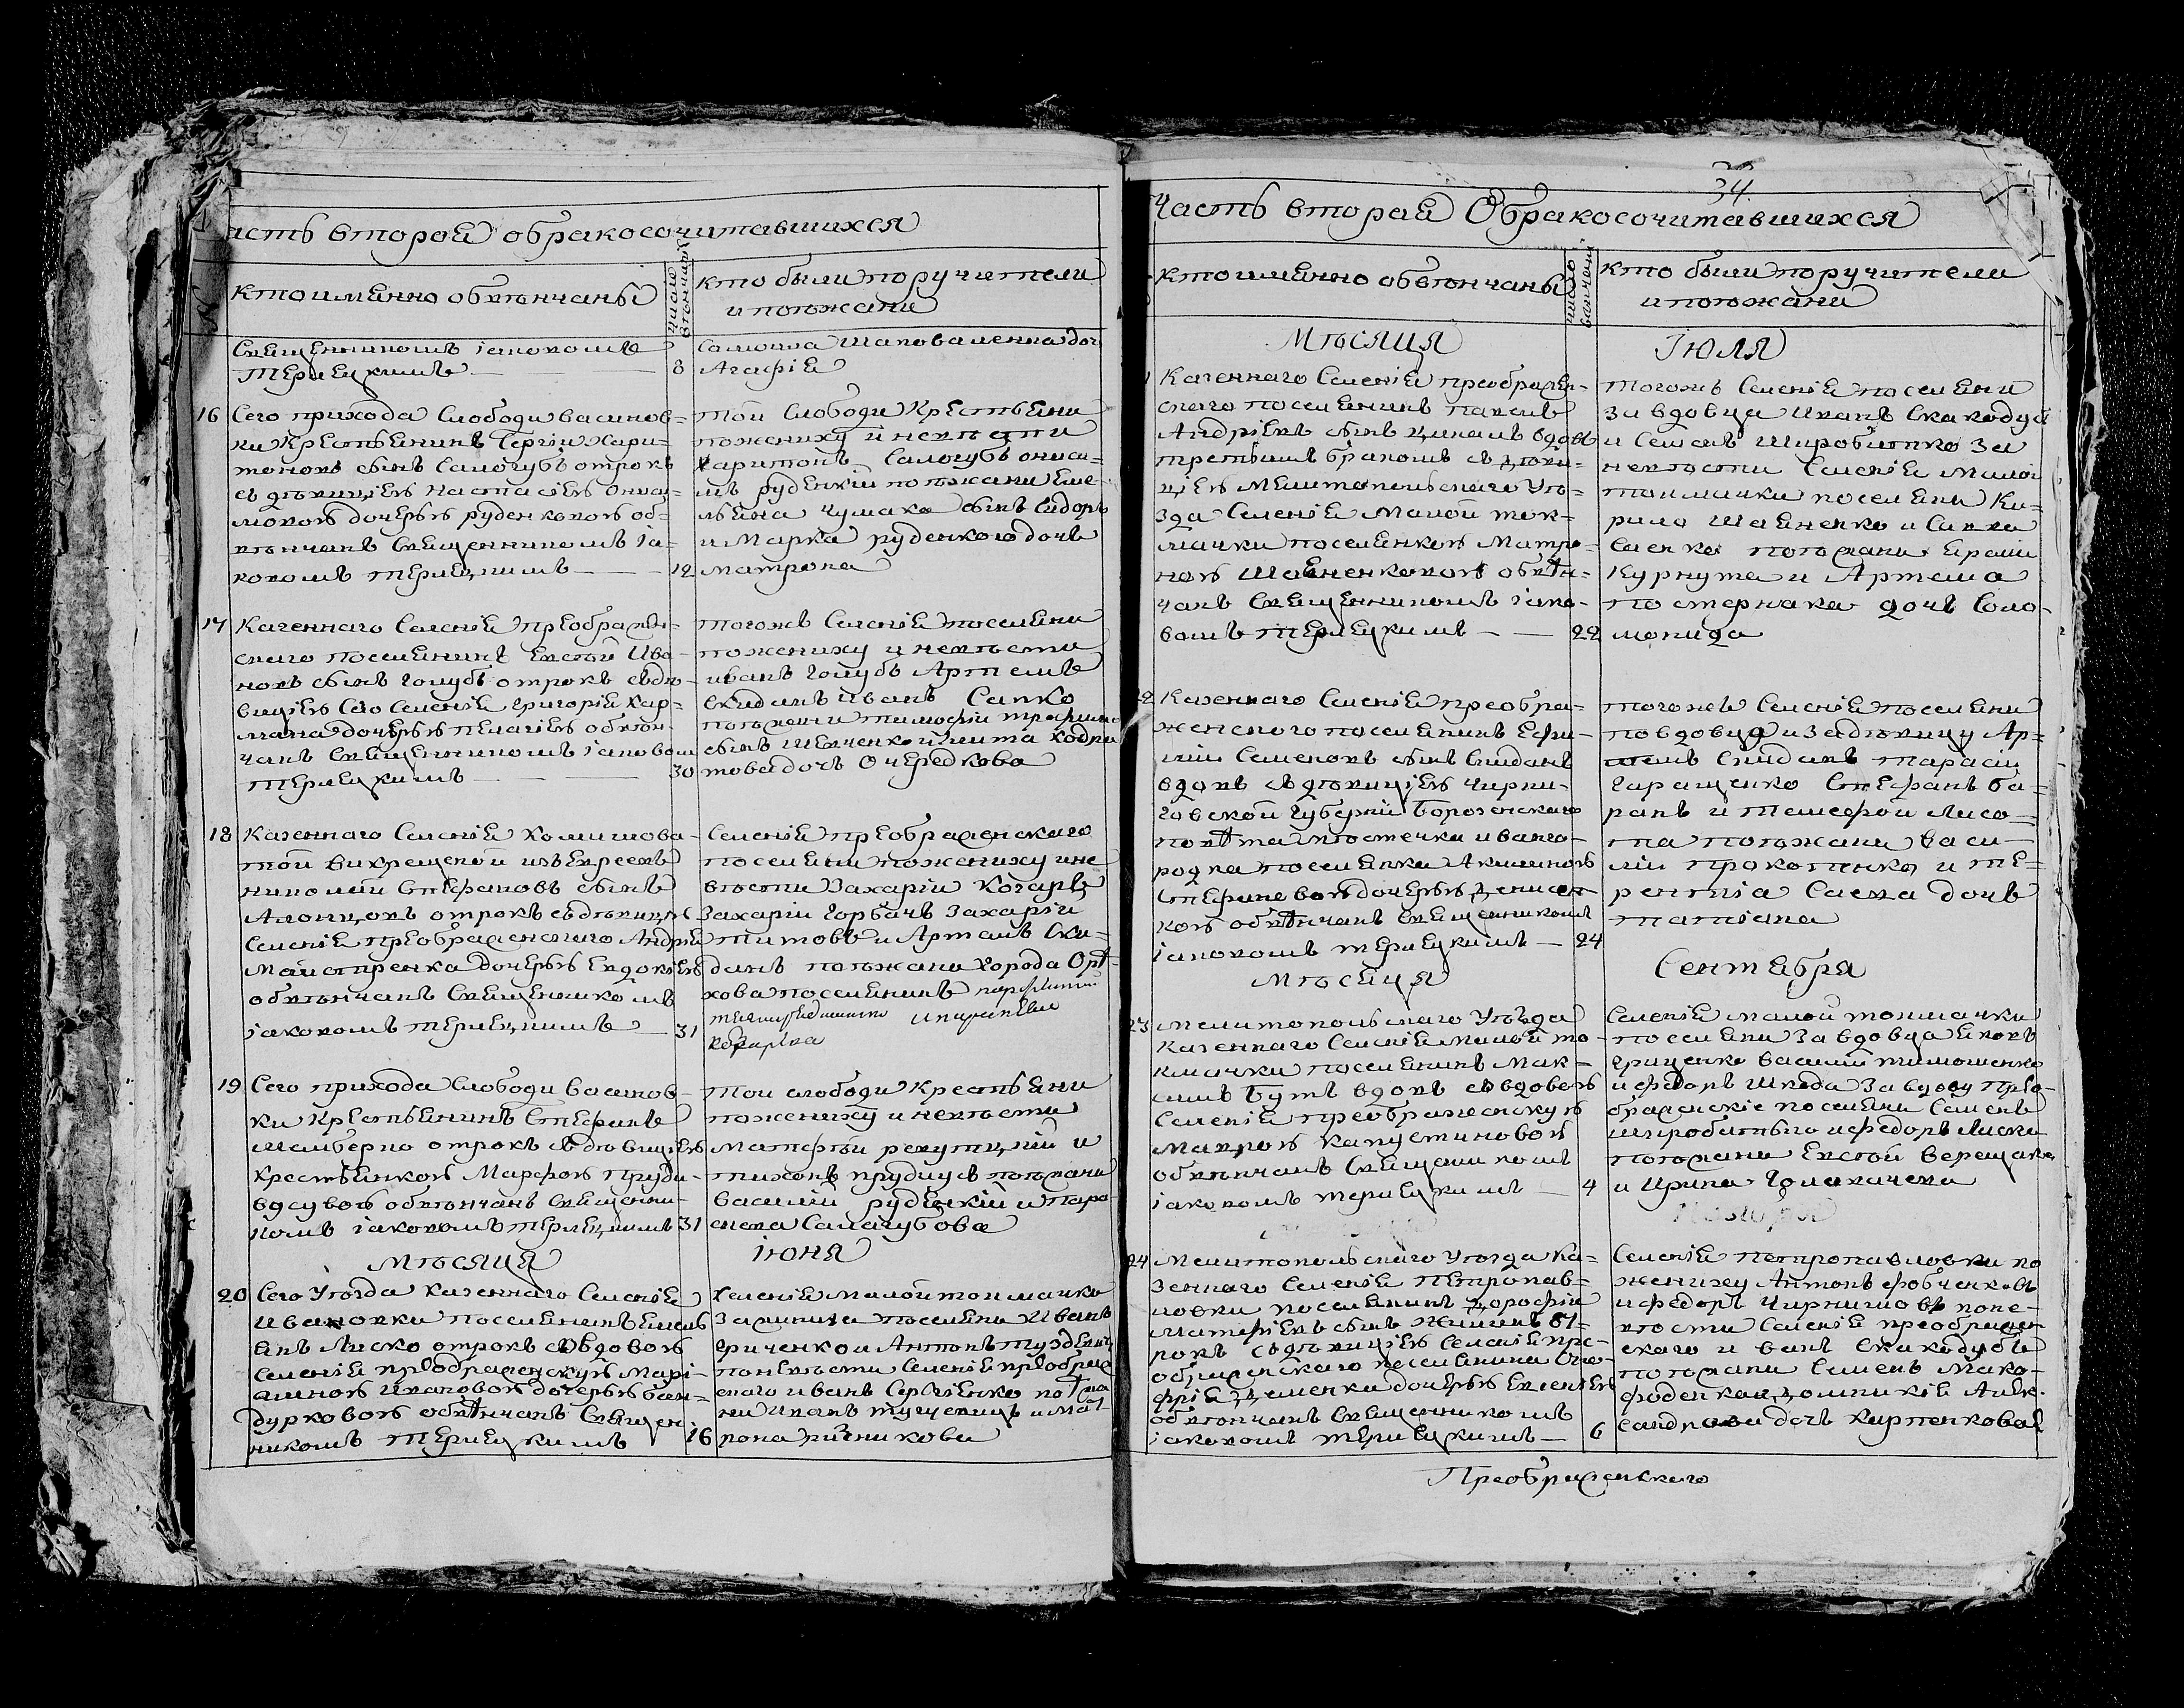 асть вторая обракосочитавшихся
кто имянно обвѣнчаны
число венчания
кто были поручители
и поѣжани
Священникомъ Іаковомъ
Терлецкимъ 8
Самоила Шаповаленка доч
Агафія
16 Сего прихода Слободи Васинов-
ки Крестьянинъ Сергій Хари-
тоновъ сынъ Самогубъ отрокъ
съ дѣвицею Настасіею Ониси-
мовою дочерью Руденковою об-
вѣнчанъ Священникомъ Іа-
ковомъ Терлецкимъ 12
той Слободи Крестьяни
по жениху и невѣсти
Харитонъ Самогубъ Ониси-
мъ Руденкій поѣжани Еме-
льяна Чумака сынъ Сидоръ
и Марка Руденкого дочь
Матрона
17 Казеннаго Селенія Преображен-
скаго поселянинъ Евстой Ива-
новъ сынъ Голубъ отрокъ съ дѣ-
вицею Сего Селенія Григорія Хар-
мана дочерью Пелагіею обвѣн-
чанъ Священникомъ Іаковом
Терлецкимъ 30
тогожъ Селенія поселяни
по жениху и невѣсти
Иванъ Голубъ Артемъ
Скиданъ Иванъ Сапко
поѣжани Тимофій Трофимо
сынъ Шевченко и Никита Кодра
това дочь Очередкова
18 Казеннаго Селенія Комишова-
той викрещеной изъ Евреевъ
Николай Стефановъ сынъ
отрокъ съ дѣвицею
Селенія Преображенскаго Андрія
Майстренка дочерью Евдокіею
обвѣнчанъ Священникомъ
Іаковомъ Терлецкимъ 31
Селенія Преображенскаго
поселяни по жениху и не
вѣсти Захарій Кочаръ
Захарій Горбачъ Захарій
Титовъ и Артемъ Ски-
данъ поѣжани Города Орѣ-
хова поселянинъ
19 Сего прихода Слободи Васинов-
ки Крестьянинъ Стефанъ
отрокъ съ дѣвицею
Крестьянкою Марфою Пруди-
вусувою обвѣнчанъ Священни-
комъ Іаковомъ Терлецкимъ 31
той слободи Крестьяни
по жениху и невѣсти
Матфѣй и
Тихонъ Прудиусъ поѣжани
Василій Руденкій и Пара-
скева Самогубова
Мѣсяца Іюня
20 Сего Уѣзда Казеннаго Селенія
Ивановки поселянинъ Емель
янъ Лиско отрокъ съ вдовою
Селенія Преображенскую Марі-
амною Ивановою дочерью Бан-
дурковою обвѣнчанъ Священ
никомъ Терлецкимъ 16
Селенія Малой Токмачки
За жениха поселяни Иванъ
Гриченко и Антонъ
по невѣсти Селенія Преображен
скаго Иванъ Сергіенко поѣжа
ни Иванъ и Мат
рона Рѣзникова
34
Часть вторая Обракосочитавшихся
кто имянно обвѣнчаны
число венчания
кто были поручители
и поѣжани
Мѣсяца Іюля
Казеннаго Селенія Преображен-
скаго поселянинъ Павелъ
Андріевъ сынъ Цикалъ вдовъ
третьимъ бракомъ съ дѣви-
цею Мелитопольскаго Уѣ-
зда Селенія Малой Ток-
мачки поселянкою Матро-
ною Шаяненковою обвѣн-
чанъ Священникомъ Іако-
вомъ Терлецкимъ 22
тогожъ Селенія поселяни
За вдовца Иванъ Скакодуб
и Семенъ Широбитко За
невѣсти Селенія Малой
Токмачки поселяни Ки-
рило Шаяненко и Савва
Саенко поѣжани Ераши
Курнута и Артема
Постернака дочь Соло-
монида
22 Казеннаго Селенія Преобра-
женского поселянинъ Ефи-
мій Семеновъ сынъ Скиданъ
вдовъ съ дѣвицею Черни-
говской Губерніи Борозенскаго
повѣта мѣстечка Иванго-
рода поселянка Акилиною
Стефановою дочерью Денисен-
кою обвѣнчанъ Священникомъ
Іаковомъ Терлецкимъ 24
тогожъ Селенія поселяни
по вдовца и За дѣвицу Ар-
темъ Скиданъ Тарасій
Геращенко Стефанъ Ба-
ранъ и Тимофей Лисо-
та поѣжани Васи-
лій Прокопенко и Те-
рентія Саека дочь
Татіана
Мѣсяца Сентября
23 Мелитопольскаго Уѣзда
Казеннаго Селенія Малой То-
кмачки поселянинъ Мак-
симъ Бутъ вдовъ съ вдовою
Селенія Преображенскую
Маврою Капустиновой
обвѣнчанъ Священникомъ
Іаковомъ Терлецкимъ 4
Селенія Малой Токмачки
поселяни За вдовца Яковъ
Гриценко Василій Тимошенко
и Федоръ Шкода За вдову Прео-
браженскіе поселяни Семенъ
Широбитько и Федоръ Лиско
поѣжани Евстой Верещака
и Ирина Головачева
24 Мелитопольскаго Уѣзда Ка-
зеннаго Селенія Петропав-
ловки поселянинъ Дорофій
Матфіевъ сынъ
съ дѣвицею Селенія Пре-
ображенскаго поселянина Оно-
фрія Деменка дочерью Евгеніею
обвѣнчанъ Священникомъ
Іаковомъ Терлецкимъ 6
Селенія Петропавловки по
жениху Антонъ
и Федоръ Чирнишовъ по не-
вѣсти Селенія Преображен-
скаго Иванъ Скакодубъ
поѣжани Семенъ Мако-
феденка и Домникія Алек-
сандрова дочь Карпенкова
Преображенскаго